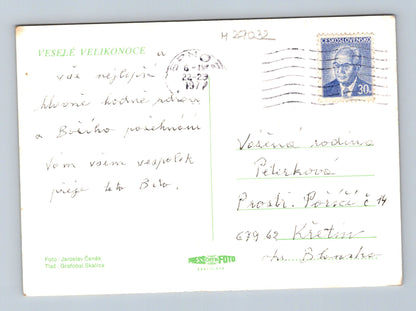 H 27032
VESELÉ VELIKONOCE a
vše nejlepší
hlavně hodně zdraví
a Božího požehnání
Vám všem vespolek
přeje
BRNO
6-IV
22-23
1977
ČESKOSLOVENSKO
30h
Vážená rodina
Peterková
Prostř. Poříčí č 14
679 62 Křetín
okr. Blansko
Foto: Jaroslav Čeněk
Tlač: Grafobal Skalica
PRESSFOTO
BRATISLAVA